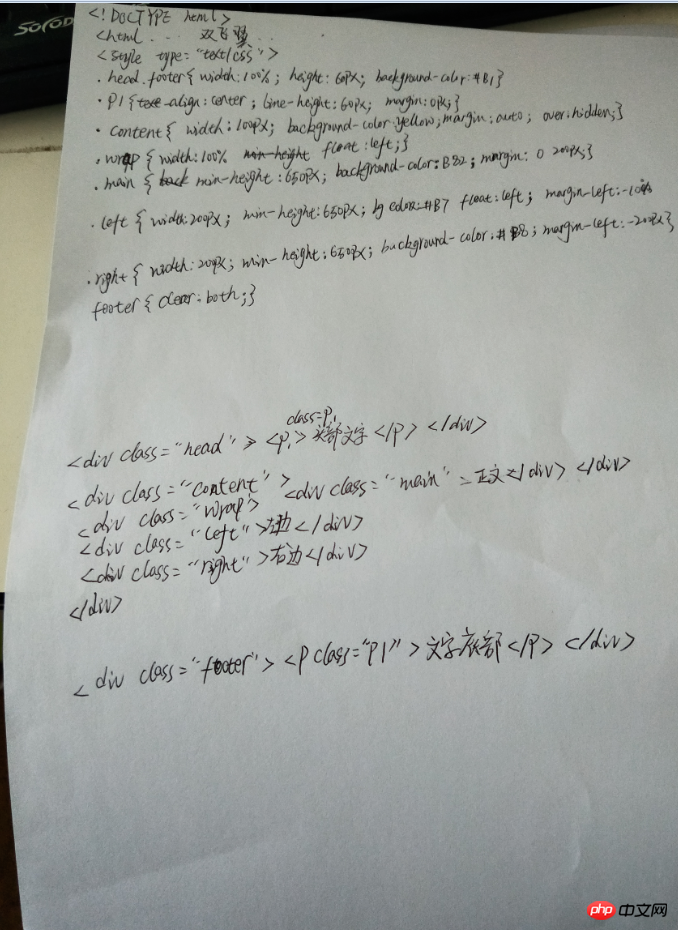 <!DOCTYPE html>
<html ... 双飞翼
<style type="text/css">
.head.footer{width:100%; height:60px; background-color:#B1}
.P1{text-align:center; line-height:60px; margin:0px;}
.content{width:100px; background-color:yellow; margin:auto; over:hidden;}
.wrap{width:100% float:left;}
.main{min-height:650px; background-color:B82; margin: 0 200px;}
.left{width:200px; min-height:650px; bg color:#B7 float:left; margin-left:-100%
.right{width:200px; min-height:650px; background-color:#B8; margin-left:-200px}
footer{clear:both;}
class=P1
<div class="head"> <P1>头部文字</P> </div>
<div class="content"> <div class="main" = 正文</div> </div>
<div class="wrap">
<div class="left">左边</div>
<div class="right">右边</div>
</div>
<div class="footer"> <P class="P1">文字底部</P> </div>
php 中文网